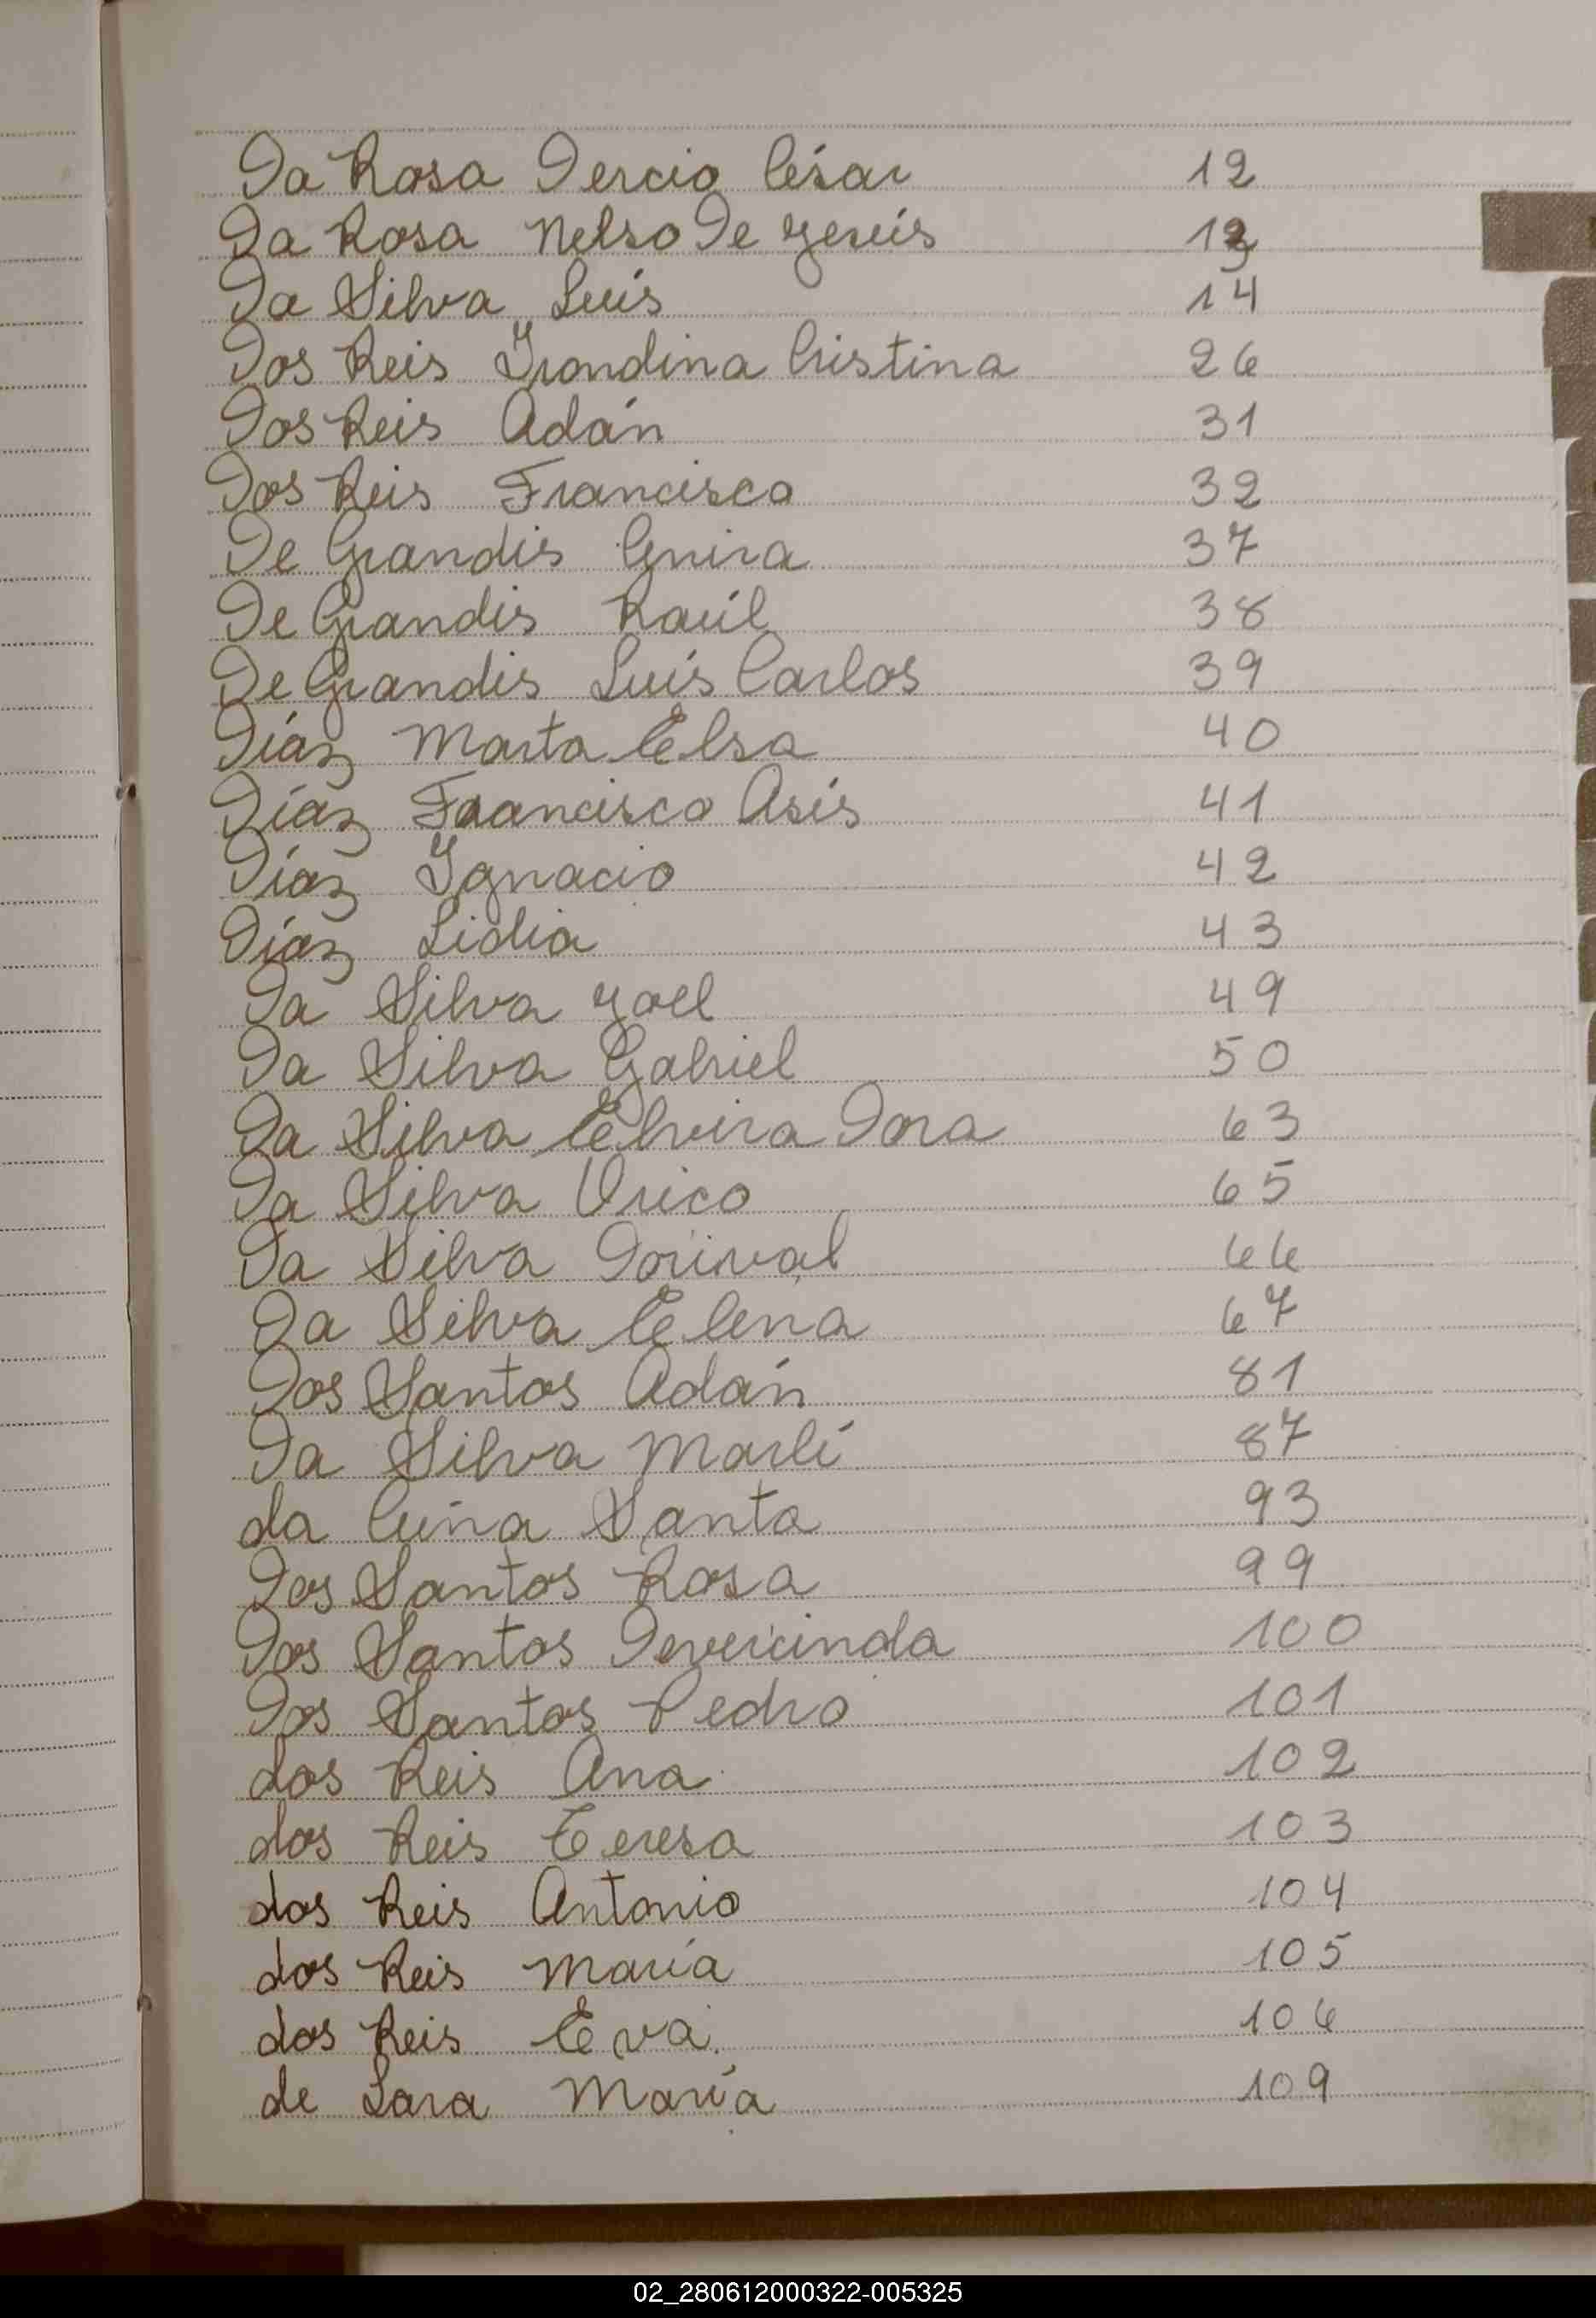 Da Rosa Dercio César 12
Da Rosa Nelso De Jesús 13
Da Silva Luis 14
Dos Reis Irondina Cristina 26
Dos Reis Adán 31
Dos Reis Francisco 32
De Grandis Cenira 37
De Grandis Raúl 38
De Grandis Luis Carlos 39
Díaz Marta Elsa 40
Díaz Francisco Asís 41
Díaz Ignacio 42
Díaz Lidia 43
Da Silva Joel 49
Da Silva Gabriel 50
Da Silva Elvira Dora 63
Da Silva Urico 65
Da Silva Dorival 66
Da Silva Elena 67
Dos Santos Adán 81
Da Silva Marlí 87
da Santa 93
Dos Santos Rosa 99
Dos Santos 100
Dos Santos Pedro 101
dos Reis Ana 102
dos Reis Teresa 103
dos Reis Antonio 104
dos Reis María 105
dos Reis Eva 106
de Lara María 109
02_280612000322-005325